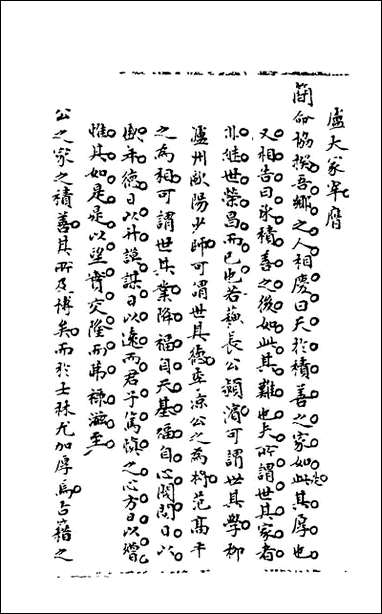 盧大冢宰啓
簡命協揆吾鄉之人相慶曰天於積善之家如此其厚也
又相告曰承積善之後如此其難也夫所謂世其家者
非繼世榮昌而已也若諫長公潁濱可謂世其學柳
瀘州歐陽少師可謂世其德牽涼公之為相范高平
之為相可謂世其業降福自天基福自心閥閱日以
歐年德日以升謨謀日以遠而君子篤慎之心方日以增
惟其如是是以望實交隆而茀祿滋至
公之家之積善其所及博矣而於士林尤加厚焉占籍之